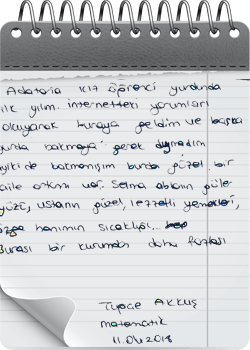 Adatoria kız öğrenci yurdunda
ilk yılım. internetteki yorumları
okuyarak buraya geldim ve başka
yurda bakmaya gerek duymadım
iyiki de bakmamışım burda güzel bir
aile ortamı var. Selma ablanın güler
yüzü, ustanın güzel, lezzetli yemekleri,
özge hanımın sıcaklığı...
Burası bir kurumdan daha fazlası
Tuğçe AKKUŞ
matematik
11.04.2018